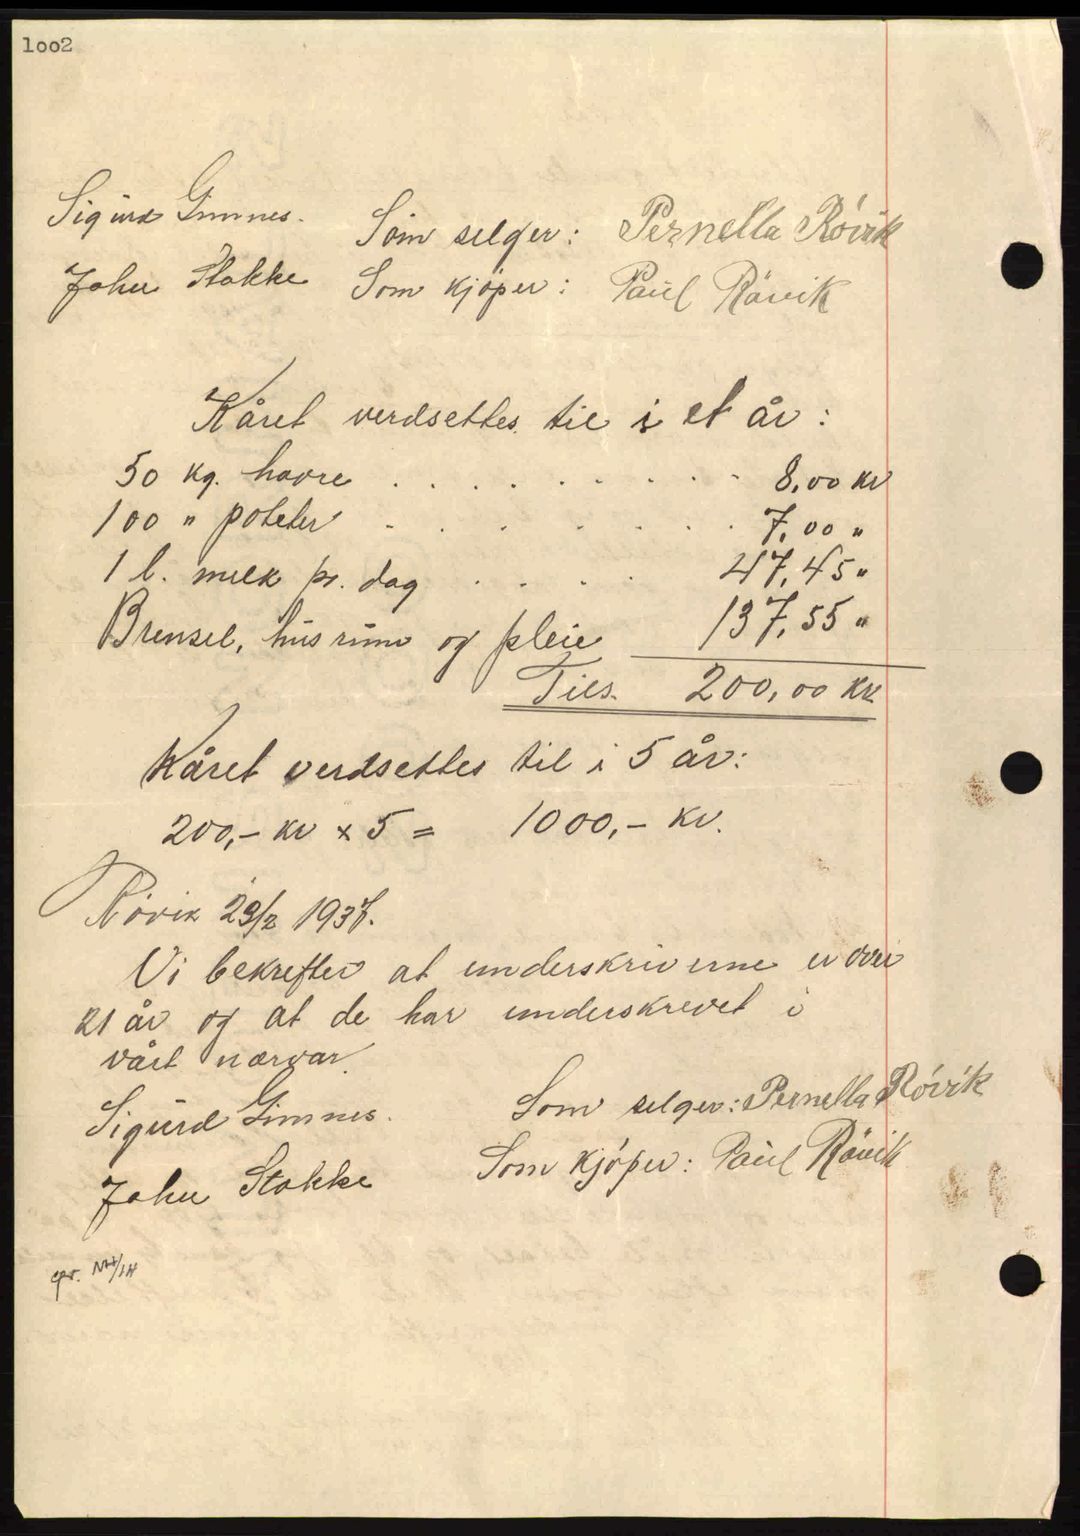 1002
Sigurd Gimnes. Som selger: Pernella Rövik
John Stokke Som kjöper: Paul Rövik
Kåret verdsettes til i et år:
50 kg. havre . . . . . . . . . 8,00 kr
100 " poteter . . . . . . . 7,00 "
1 l. melk pr. dag . . . . 47,45 "
Brensel, husrum og pleie 137,55 "
Tils. 200,00 kr
Kåret verdsettes til i 5 år:
200,- kr x 5 = 1000,- kr.
Rövik 1937.
Vi bekrefter at underskriverne er over
21 år og at de har underskrevet i
vårt nærvær.
Sigurd Gimnes. Som selger: Pernella Rövik
John Stokke Som kjöper: Paul Rövik
NH/IH